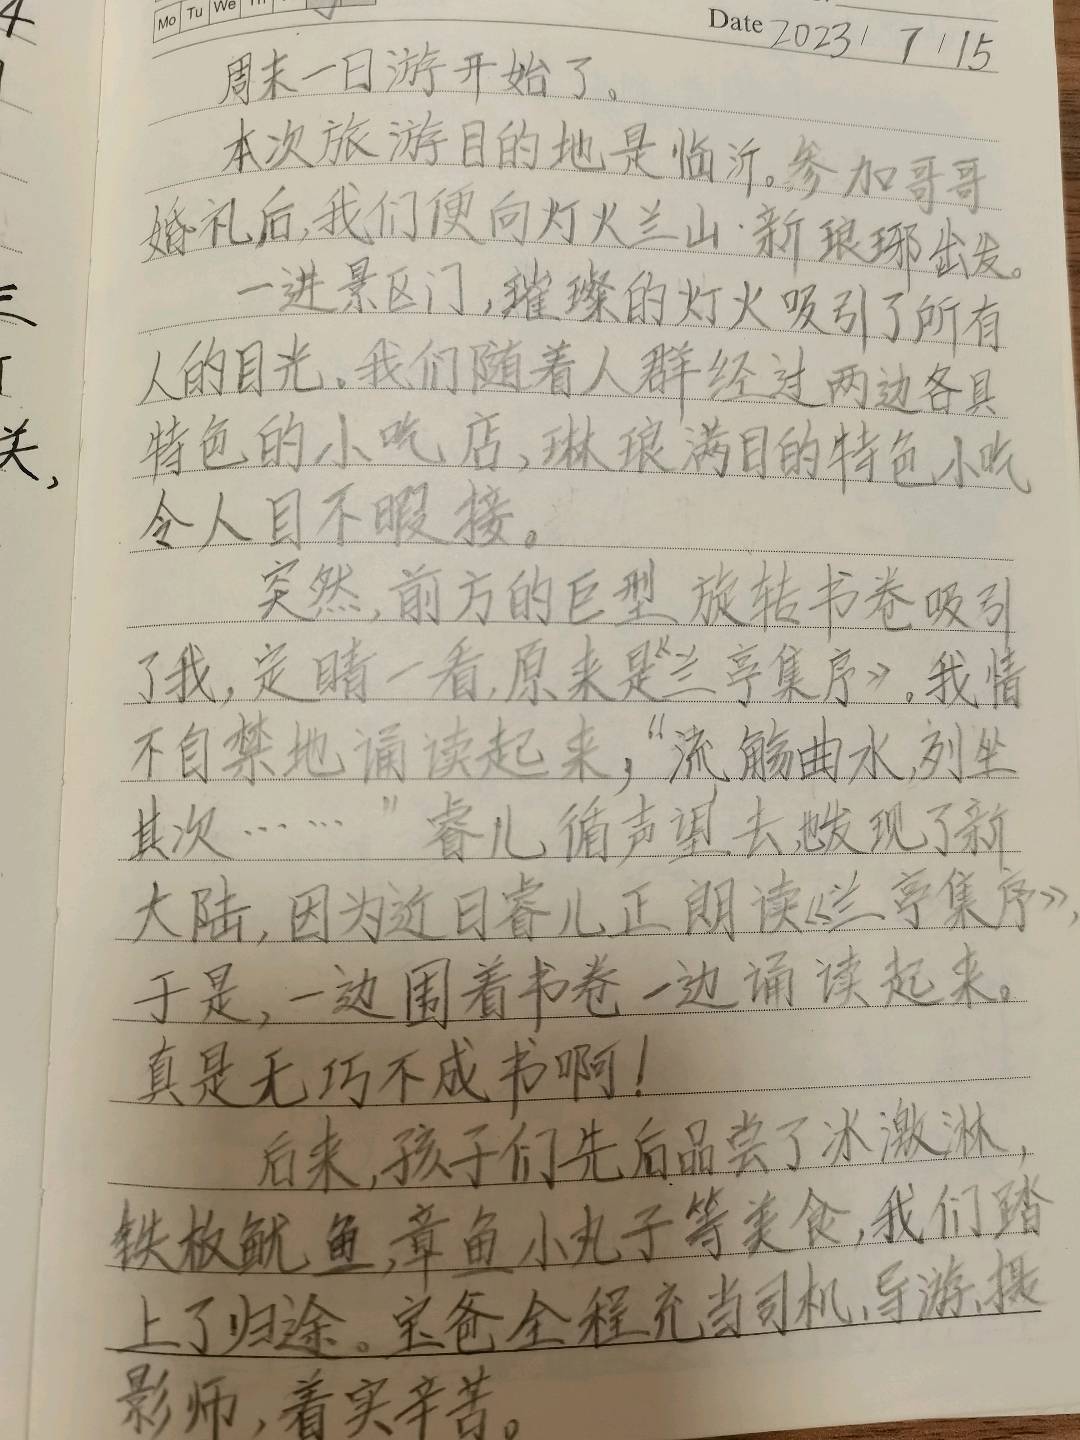 4
Mo Tu We Th
Date 2023/7/15
周末一日游开始了。
本次旅游目的地是临沂。参加哥哥
婚礼后,我们便向灯火兰山·新琅琊出发。
一进景区门,璀璨的灯火吸引了所有
人的目光。我们随着人群经过两边各具
特色的小吃店,琳琅满目的特色小吃
令人目不暇接。
突然,前方的巨型旋转书卷吸引
了我,定睛一看,原来是《兰亭集序》。我情
不自禁地诵读起来,“流觞曲水,列坐
其次……”睿儿循声望去,也发现了新
大陆,因为近日睿儿正朗读《兰亭集序》,
于是,一边围着书卷一边诵读起来。
真是无巧不成书啊!
后来,孩子们先后品尝了冰激淋,
铁板鱿鱼,章鱼小丸子等美食,我们踏
上了归途。宝爸全程充当司机、导游、摄
影师,着实辛苦。
三
关,